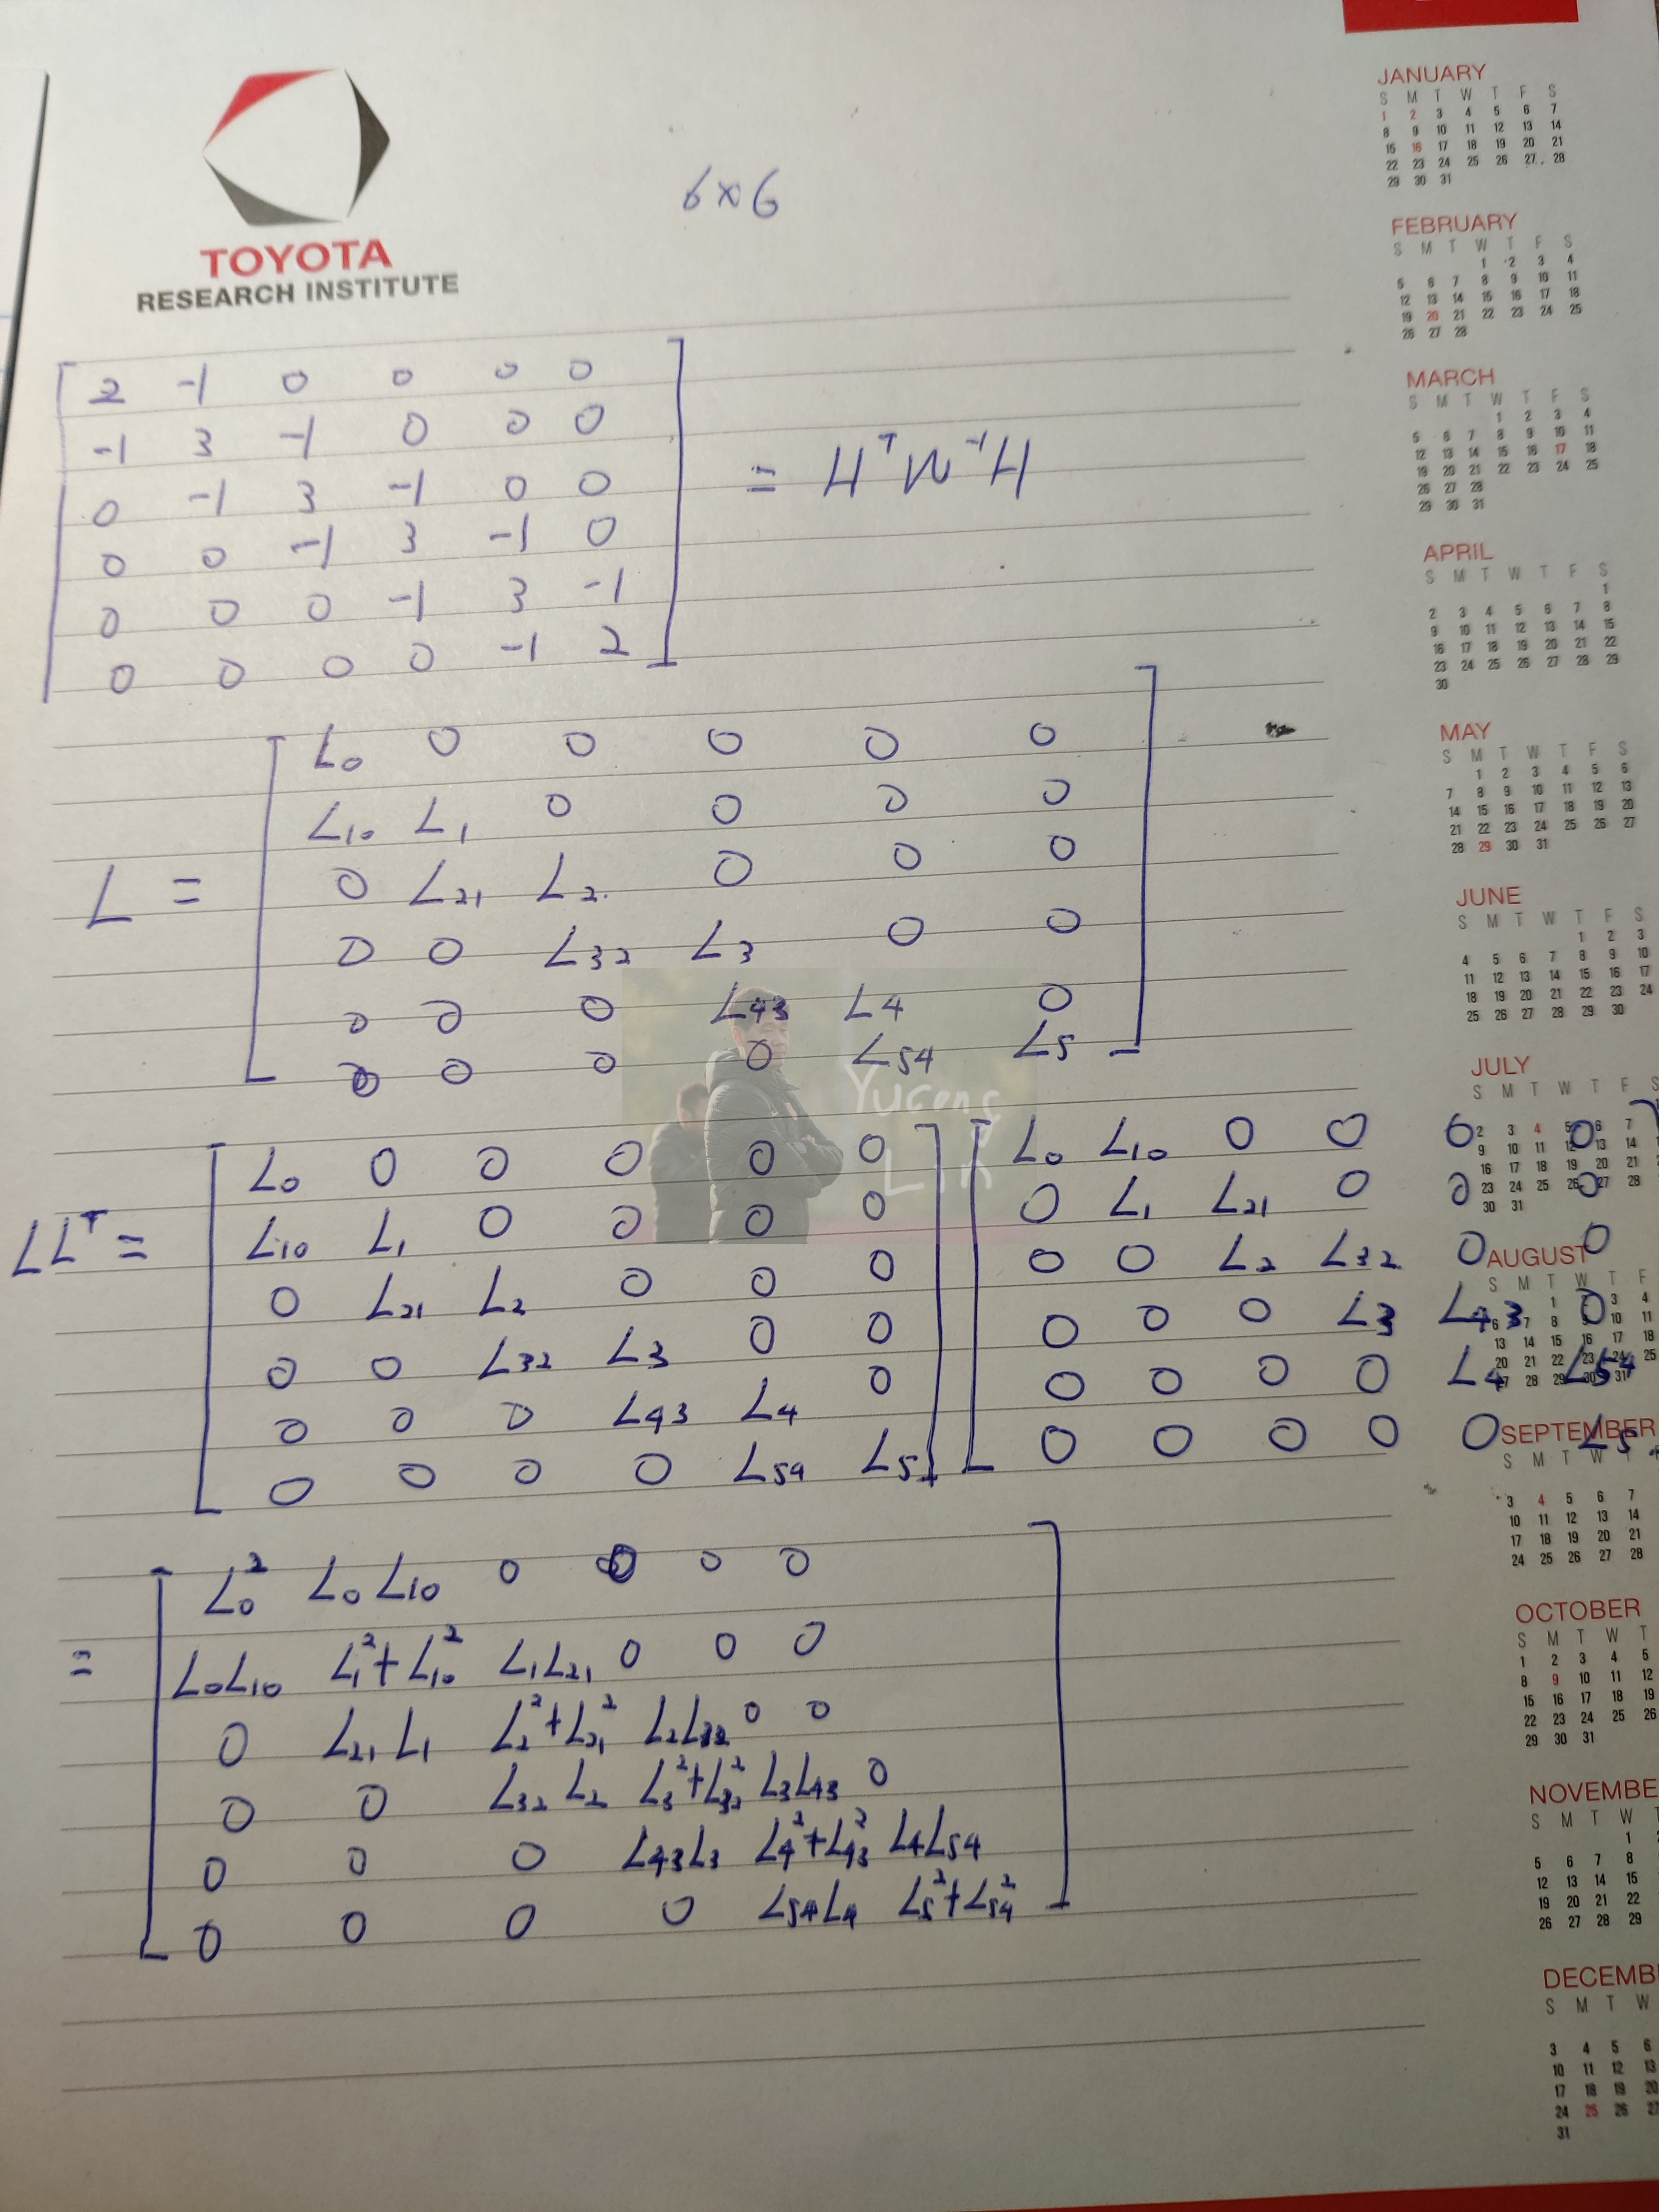 TOYOTA
RESEARCH INSTITUTE
6×6
2 -1 0 0 0 0
-1 3 -1 0 0 0
0 -1 3 -1 0 0
0 0 -1 3 -1 0
0 0 0 -1 3 -1
0 0 0 0 -1 2
= HᵀW⁻¹H
L =
L₀ 0 0 0 0 0
L₁₀ L₁ 0 0 0 0
0 L₂₁ L₂ 0 0 0
0 0 L₃₂ L₃ 0 0
0 0 0 L₄₃ L₄ 0
0 0 0 0 L₅₄ L₅
Yucong
Lin
LLᵀ =
L₀ 0 0 0 0 0
L₁₀ L₁ 0 0 0 0
0 L₂₁ L₂ 0 0 0
0 0 L₃₂ L₃ 0 0
0 0 0 L₄₃ L₄ 0
0 0 0 0 L₅₄ L₅
L₀ L₁₀ 0 0 0 0
0 L₁ L₂₁ 0 0 0
0 0 L₂ L₃₂ 0 0
0 0 0 L₃ L₄₃ 0
0 0 0 0 L₄ L₅₄
0 0 0 0 0 L₅
=
L₀² L₀L₁₀ 0 0 0 0
L₀L₁₀ L₁²+L₁₀² L₁L₂₁ 0 0 0
0 L₂₁L₁ L₂²+L₂₁² L₂L₃₂ 0 0
0 0 L₃₂L₂ L₃²+L₃₂² L₃L₄₃ 0
0 0 0 L₄₃L₃ L₄²+L₄₃² L₄L₅₄
0 0 0 0 L₅₄L₄ L₅²+L₅₄²
JANUARY
S M T W T F S
1 2 3 4 5 6 7
8 9 10 11 12 13 14
15 16 17 18 19 20 21
22 23 24 25 26 27 28
29 30 31
FEBRUARY
S M T W T F S
1 2 3 4
5 6 7 8 9 10 11
12 13 14 15 16 17 18
19 20 21 22 23 24 25
26 27 28
MARCH
S M T W T F S
1 2 3 4
5 6 7 8 9 10 11
12 13 14 15 16 17 18
19 20 21 22 23 24 25
26 27 28
29 30 31
APRIL
S M T W T F S
1
2 3 4 5 6 7 8
9 10 11 12 13 14 15
16 17 18 19 20 21 22
23 24 25 26 27 28 29
30
MAY
S M T W T F S
1 2 3 4 5 6
7 8 9 10 11 12 13
14 15 16 17 18 19 20
21 22 23 24 25 26 27
28 29 30 31
JUNE
S M T W T F S
1 2 3
4 5 6 7 8 9 10
11 12 13 14 15 16 17
18 19 20 21 22 23 24
25 26 27 28 29 30
JULY
S M T W T F S
2 3 4 5 6 7
9 10 11 12 13 14
16 17 18 19 20 21
23 24 25 26 27 28
30 31
AUGUST
S M T W T F
1 3 4
6 7 8 9 10 11
13 14 15 16 17 18
20 21 22 23 24 25
27 28 29 30 31
SEPTEMBER
S M T W
3 4 5 6 7
10 11 12 13 14
17 18 19 20 21
24 25 26 27 28
OCTOBER
S M T W T
1 2 3 4 5
8 9 10 11 12
15 16 17 18 19
22 23 24 25 26
29 30 31
NOVEMBE
S M T W
1
5 6 7 8
12 13 14 15
19 20 21 22
26 27 28 29
DECEMB
S M T W
3 4 5 6
10 11 12 13
17 18 19 20
24 25 26 27
31